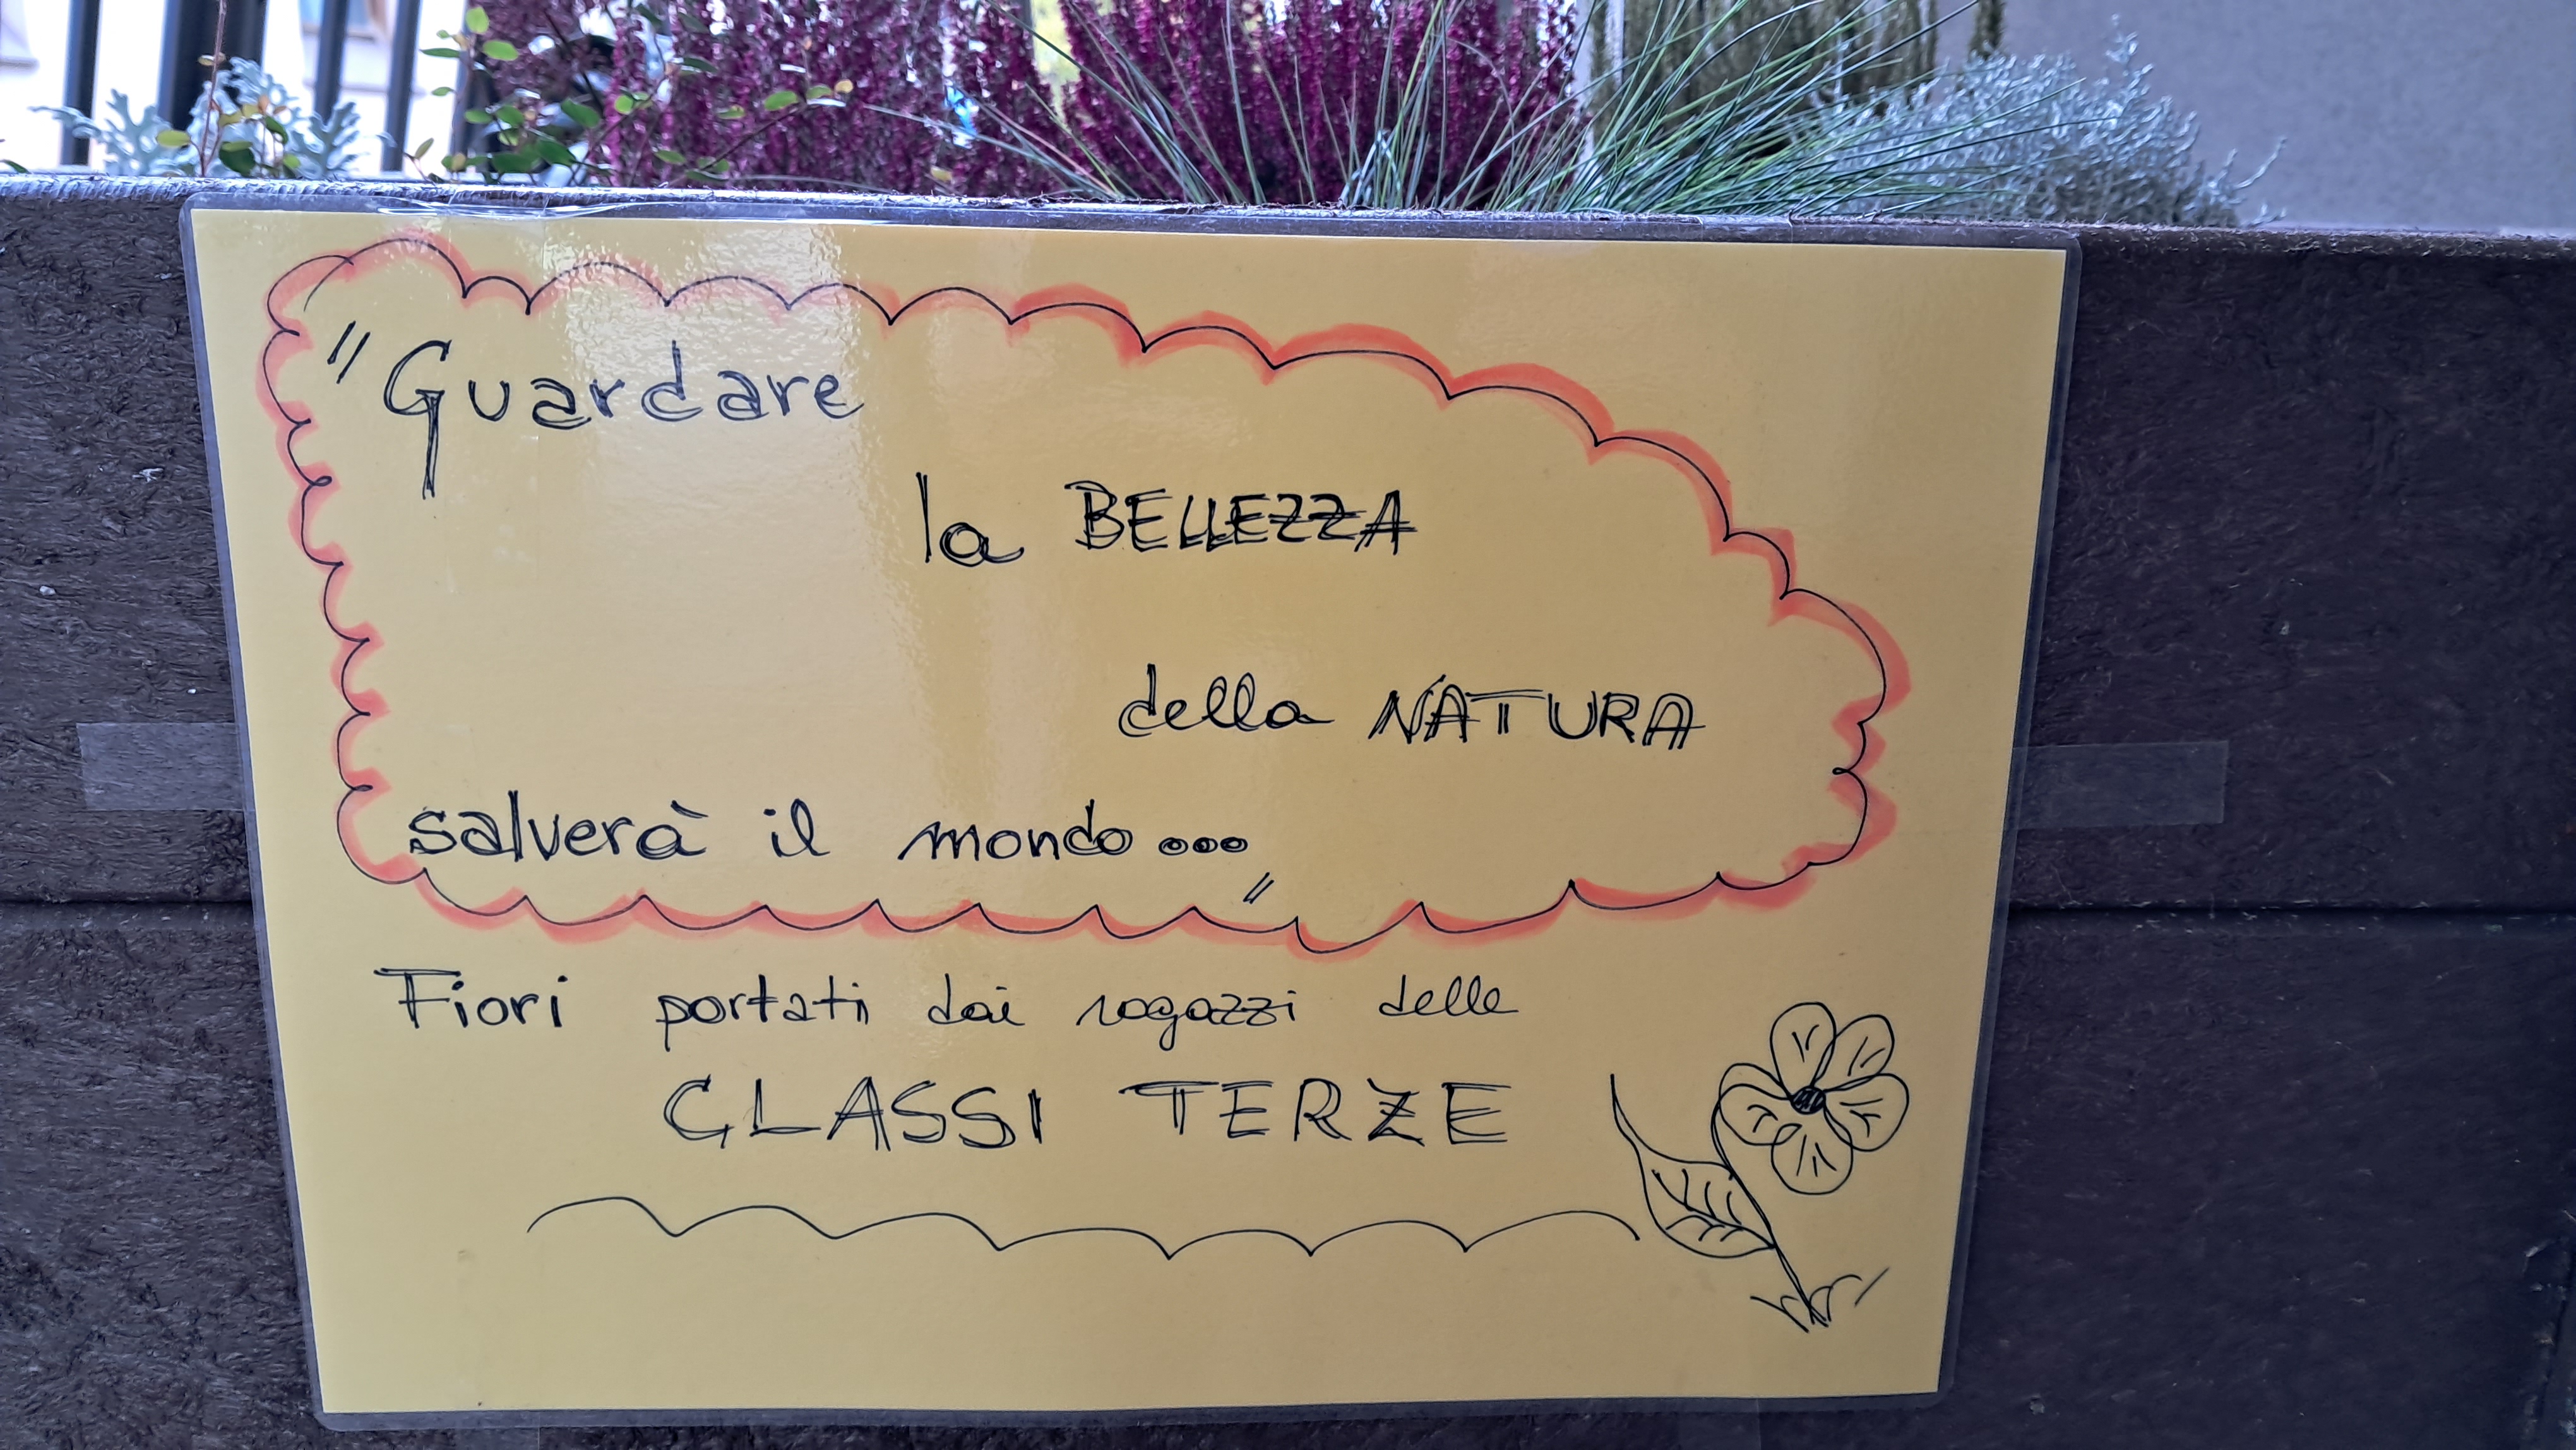 "Guardare
la BELLEZZA
della NATURA
salverà il mondo..."
Fiori portati dai ragazzi delle
CLASSI TERZE